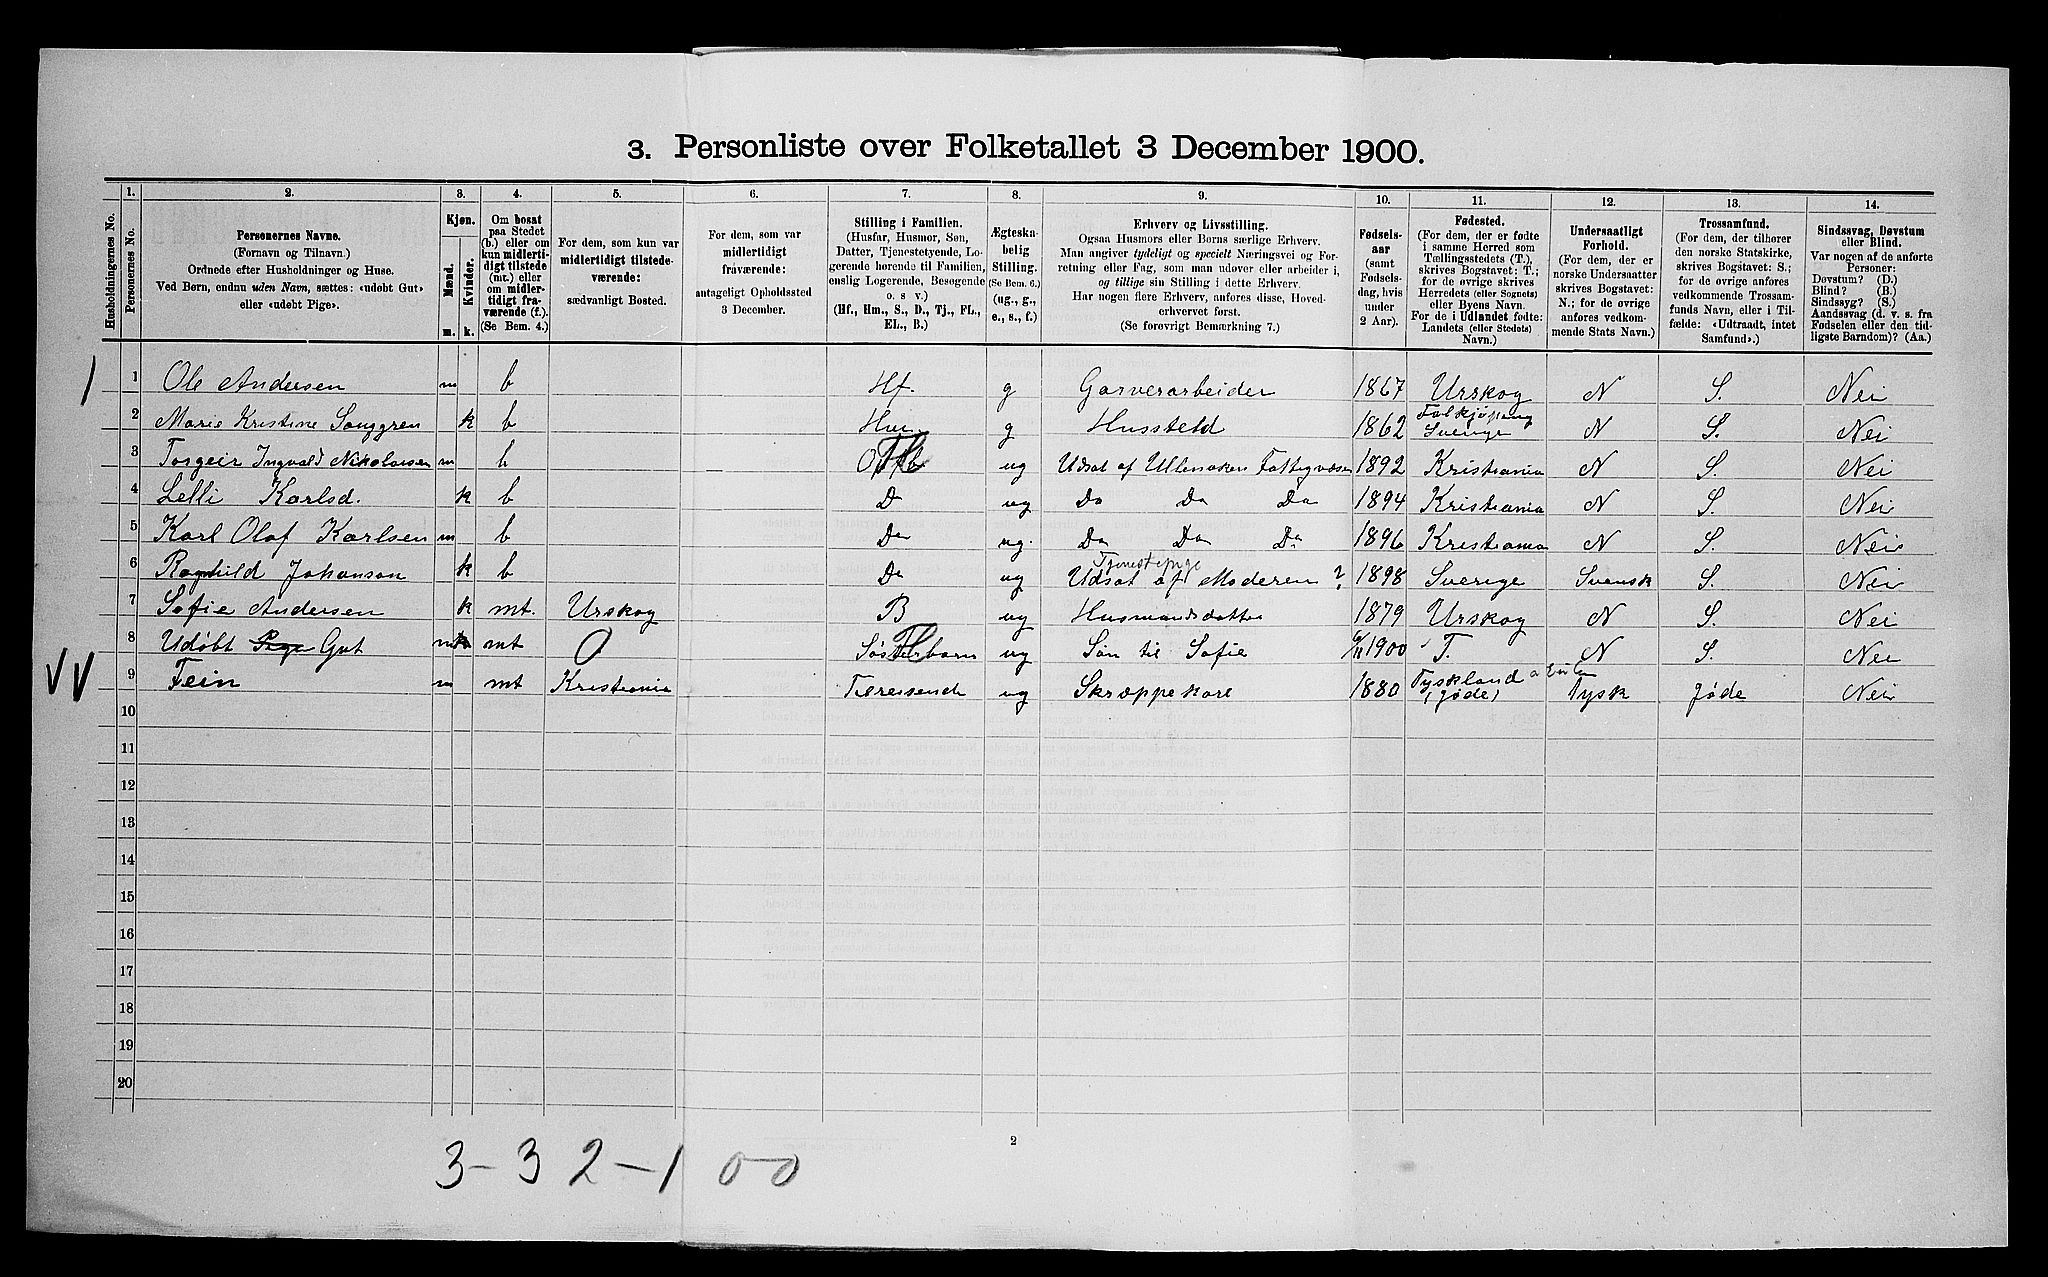 3. Personliste over Folketallet 3 December 1900.
Husholdningernes No.
1.
Personernes No.
2.
Personernes Navne.
(Fornavn og Tilnavn.)
Ordnede efter Husholdninger og Huse.
Ved Børn, endnu uden Navn, sættes: «udøbt Gut»
eller «udøbt Pige».
3.
Kjøn.
Mænd.
Kvinder.
m.
k.
4.
Om bosat
paa Stedet
(b.) eller om
kun midlerti-
digt tilstede
(mt.) eller
om midler-
tidigt fra-
værende (f.).
(Se Bem. 4.)
5.
For dem, som kun var
midlertidigt tilstede-
værende:
sædvanligt Bosted.
6.
For dem, som var
midlertidigt
fraværende:
antageligt Opholdssted
3 December.
7.
Stilling i Familien.
(Husfar, Husmor, Søn,
Datter, Tjenestetyende, Lo-
gerende hørende til Familien,
enslig Logerende, Besøgende
o. s v.)
(Hf., Hm., S., D., Tj., FL.,
EL., B.)
8.
Ægteska-
belig
Stilling.
(Se Bem. 6.)
(ug., g.,
e., s., f.)
9.
Erhverv og Livsstilling.
Ogsaa Husmors eller Børns særlige Erhverv.
Man angiver tydeligt og specielt Næringsvei og For-
retning eller Fag, som man udøver eller arbeider i,
og tillige sin Stilling i dette Erhverv.
Har nogen flere Erhverv, anføres disse, Hoved-
erhvervet først.
(Se forøvrigt Bemærkning 7.)
10.
Fødsels-
aar
(samt
Fødsels-
dag, hvis
under
2 Aar).
11.
Fødested.
(For dem, der er fødte
i samme Herred som
Tællingsstedets (T.),
skrives Bogstavet: T.;
for de øvrige skrives
Herredets (eller Sognets)
eller Byens Navn.
For de i Udlandet fødte:
Landets (eller Stedets)
Navn.)
12.
Undersaatligt
Forhold.
(For dem, der er
norske Undersaatter
skrives Bogstavet:
N.; for de øvrige
anføres vedkom-
mende Stats Navn.)
13.
Trossamfund.
(For dem, der tilhører
den norske Statskirke,
skrives Bogstavet: S.;
for de øvrige anføres
vedkommende Trossam-
funds Navn, eller i Til-
fælde: «Udtraadt, intet
Samfund».)
14.
Sindssvag, Døvstum
eller Blind.
Var nogen af de anførte
Personer:
Døvstum? (D.)
Blind? (B.)
Sindssyg? (S.)
Aandssvag (d. v. s. fra
Fødselen eller den tid-
ligste Barndom)? (Aa.)
1 1 Ole Andersen m b Hf. g Garverarbeider 1867 Urskog N S. Nei
2 Marie Kristine Sanggren k b Hm. g Hussteld 1862 Falkjøping Sverige N S. Nei
3 Torgeir Ingvald Nikolaisen m b ug Udsat af Ullensaker Fattigvæsen 1892 Kristiania N S. Nei
4 Lelli Karlsd. k b Do ug Do Do Do 1894 Kristiania N S. Nei
5 Karl Olaf Karlsen m b Do ug. Do Do Do 1896 Kristiania N S. Nei
6 Ragnhild Johanson k b Do ug Tjenestepige Udsat af Moderen? 1898 Sverige Svensk S. Nei
7 Sofie Andersen k mt. Urskog B ug Husmandsdatter 1879 Urskog N S. Nei
8 Udøbt Pige Gut m k mt O Søsterbarn FL ug Søn til Sofie 1900 T. N S. Nei
VV 9 Fein m mt Kristiania Tilreisende ug Skræppekare 1880 Tyskland (Jøde) Tysk Jøde Nei
10
11
12
13
14
15
16
17
18
19
20
2
3-3 2-1 0-0